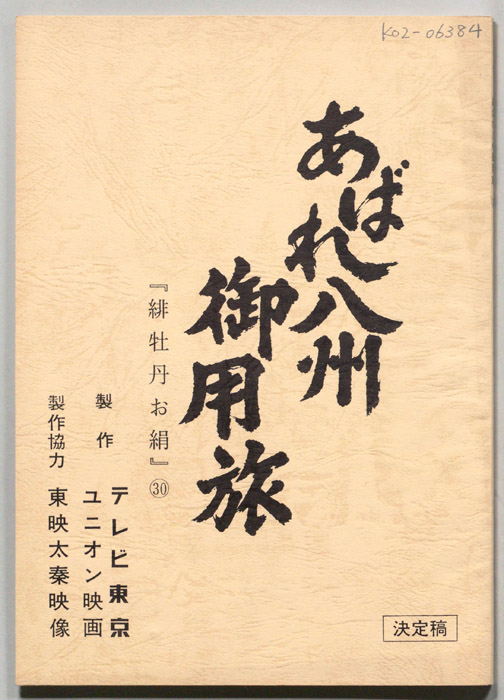 K02-06384
あばれ八州
御用旅
『緋牡丹お絹』㉚
製作
テレビ東京
ユニオン映画
製作協力
東映太秦映像
決定稿